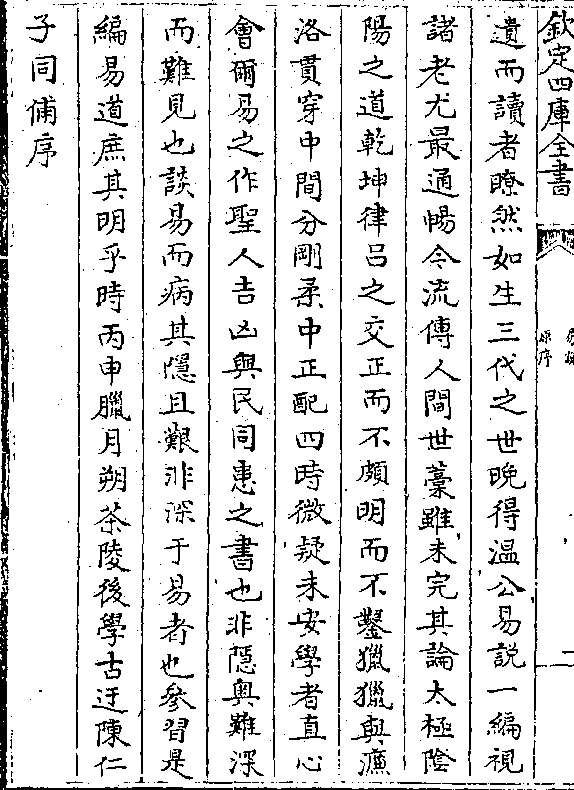 欽定四庫全書
易說
原序
二
遺而讀者瞭然如生三代之世晩得温公易說一編視
諸老尤最通暢今流傳人間世藁雖未完其論太極陰
陽之道乾坤律吕之交正而不頗明而不鑿獵獵與濂
洛貫穿中間分剛柔中正配四時微疑未安學者直心
會爾易之作聖人吉凶與民同患之書也非隱奥難深
而難見也談易而病其隱且艱非深于易者也參習是
編易道庶其明乎時丙申臘月朔茶陵後學古迂陳仁
子同俌序